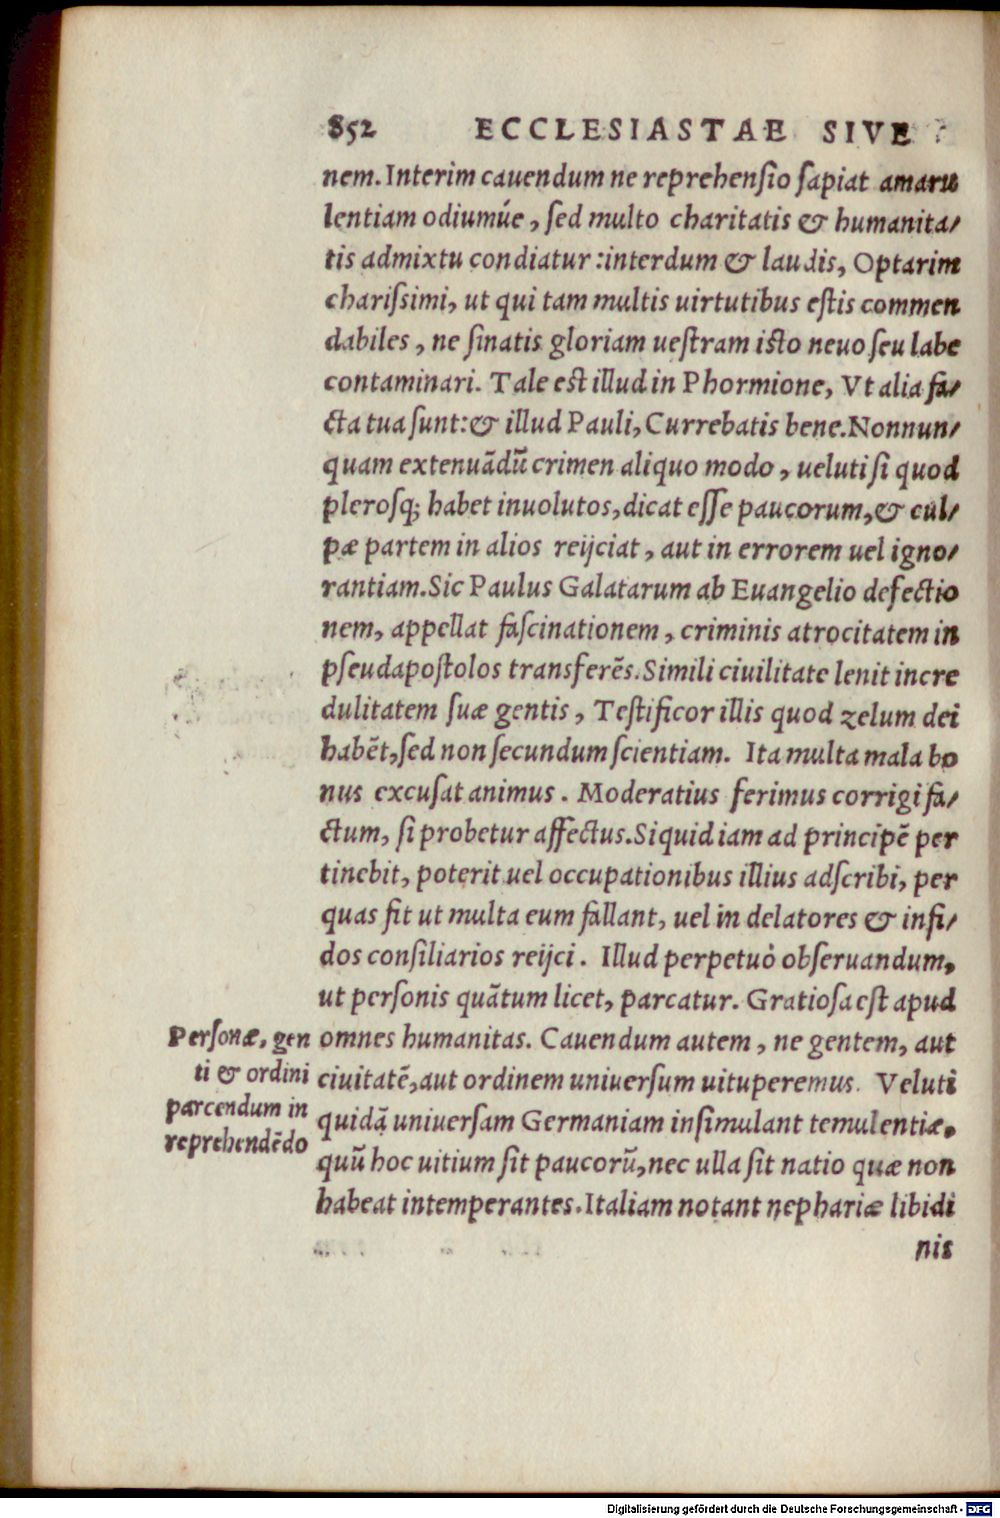 852 ECCLESIASTAE SIVE
nem. Interim cauendum ne reprehensio ſapiat amaru
lentiam odiumúe, ſed multo charitatis & humanita/
tis admixtu condiatur: interdum & laudis, Optarim
chariſsimi, ut qui tam multis uirtutibus eſtis commen
dabiles, ne ſinatis gloriam ueſtram isto neuo ſeu labe
contaminari. Tale est illud in Phormione, Vt alia fa/
cta tua ſunt: & illud Pauli, Currebatis bene. Nonnun/
quam extenuãdũ crimen aliquo modo, ueluti ſi quod
pleroſq; habet inuolutos, dicat eſſe paucorum, & cul/
pæ partem in alios reijciat, aut in errorem uel igno/
rantiam. Sic Paulus Galatarum ab Euangelio defectio
nem, appellat faſcinationem, criminis atrocitatem in
pſeudapoſtolos transferẽs. Simili ciuilitate lenit incre
dulitatem ſuæ gentis, Teſtificor illis quod zelum dei
habẽt, ſed non ſecundum ſcientiam. Ita multa mala bo
nus excuſat animus. Moderatius ferimus corrigi fa/
ctum, ſi probetur affectus. Siquid iam ad principẽ per
tinebit, poterit uel occupationibus illius adſcribi, per
quas fit ut multa eum fallant, uel in delatores & infi/
dos conſiliarios reijci. Illud perpetuò obſeruandum,
ut perſonis quãtum licet, parcatur. Gratioſa est apud
omnes humanitas. Cauendum autem, ne gentem, aut
ciuitatẽ, aut ordinem uniuerſum uituperemus. Veluti
quidã uniuerſam Germaniam inſimulant temulentiæ,
quũ hoc uitium ſit paucorũ, nec ulla ſit natio quæ non
habeat intemperantes. Italiam notant nephariæ libidi
nis
Perſonæ, gen
ti & ordini
parcendum in
reprehendẽdo
Digitalisierung gefördert durch die Deutsche Forschungsgemeinschaft - DFG